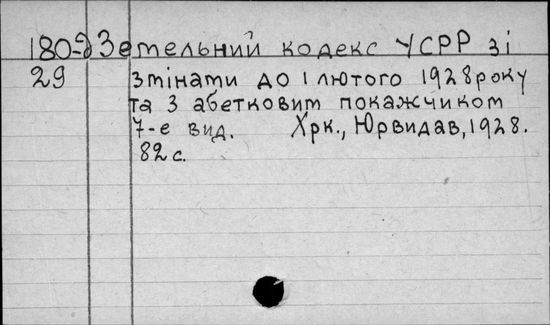 180-д Земельний кодекс УСРР зі
29 змінами до 1 лютого 1928 року
та з абетковим покажчиком
7-е вид. Хрк., Юрвидав, 1928.
82 с.